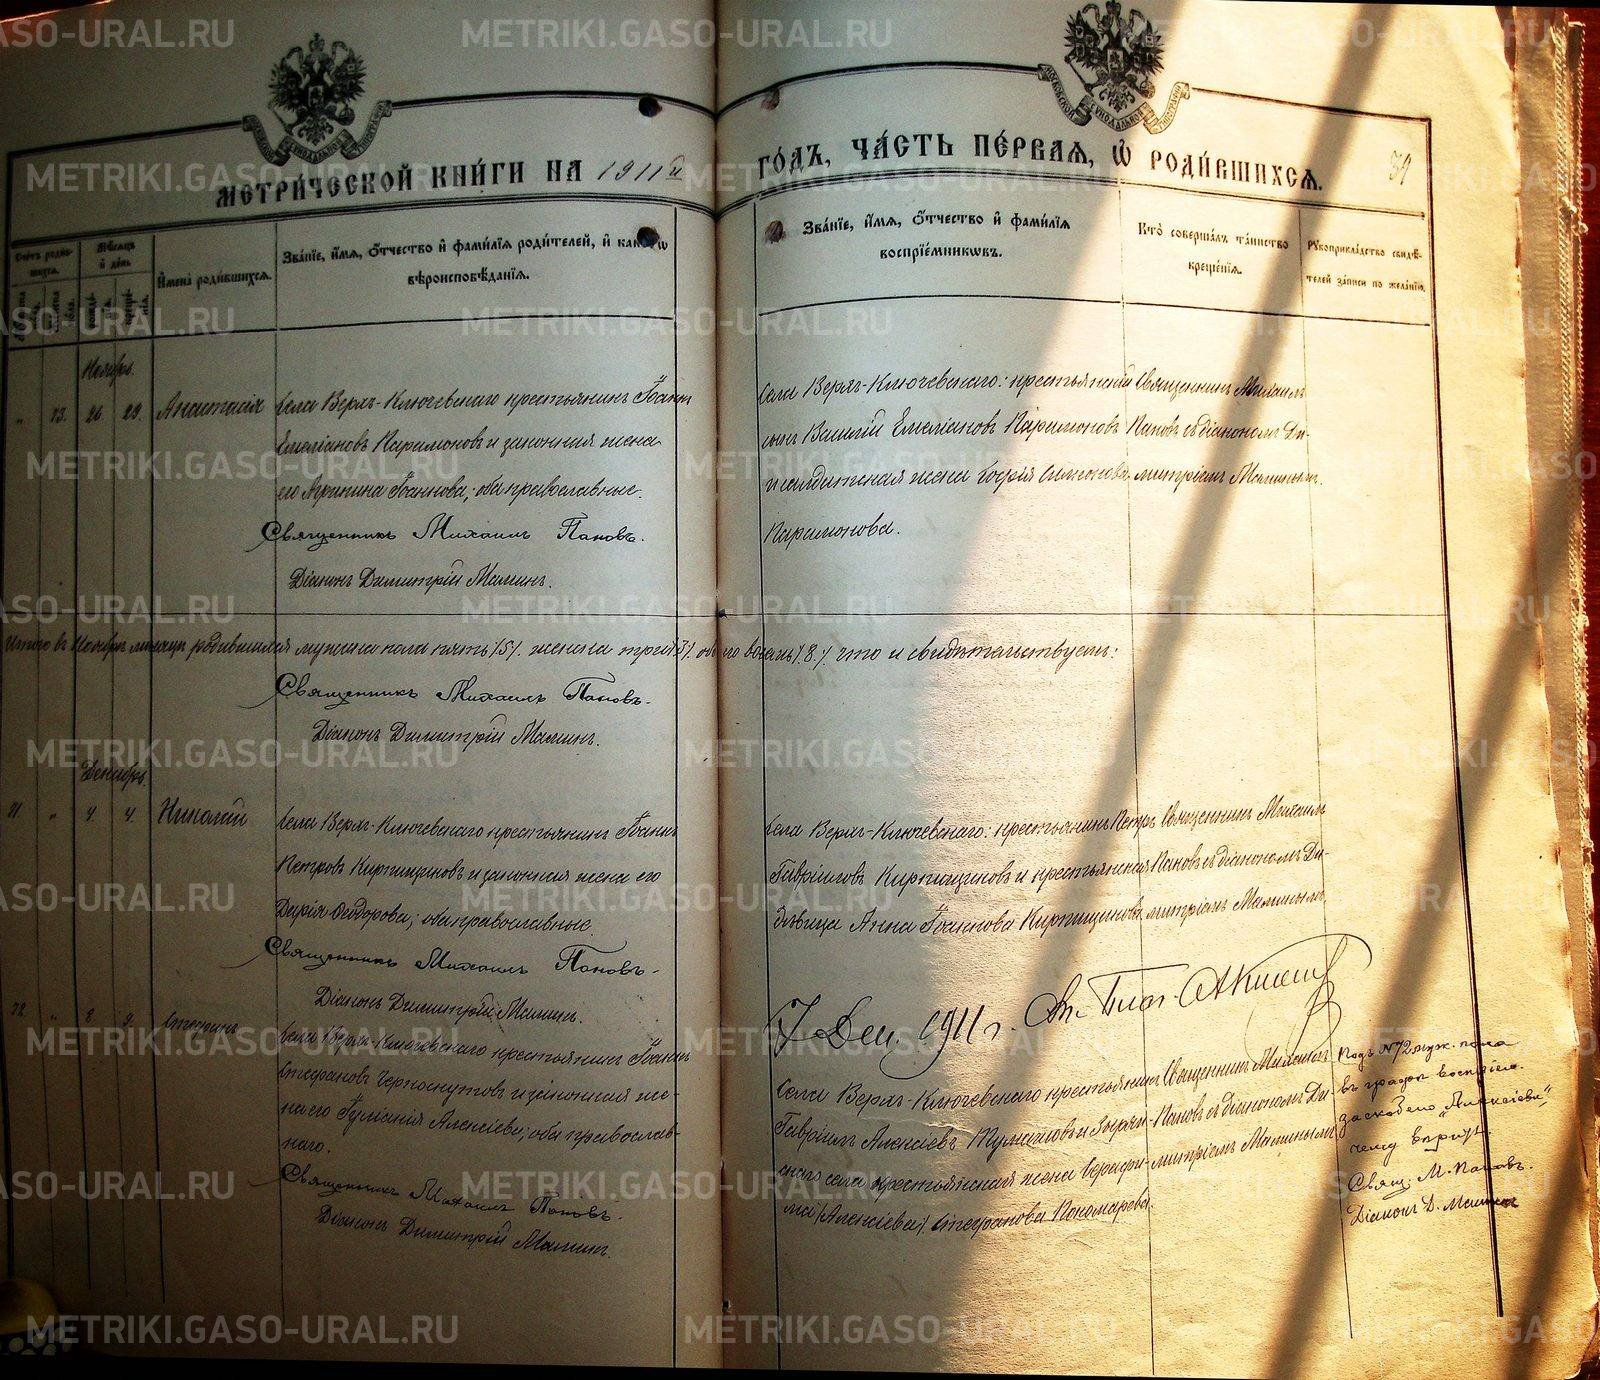 МЕТРИ́ЧЕСКОЙ КНИ́ГИ НА 1911й ГО́ДЪ, ЧА́СТЬ ПЕ́РВАѦ, Ѽ РОДИ́ВШИХСѦ.
39
Мѣсѧцъ и҆ де́нь
И҆мена̀ роди́вшихсѧ.
Зва́нїе, и҆́мѧ, ѻ҆́тчество и҆ фами́лїѧ роди́телей, и҆
вѣроисповѣ́данїѧ.
Зва́нїе, и҆́мѧ, ѻ҆́тчество и҆ фами́лїѧ
воспрїе́мникѡвъ.
Кто̀ соверша́лъ та́инство
креще́нїѧ.
Рꙋкоприкла́дство свидѣ́-
телей за́писи по жела́нїю.
Ноябрь.
" 73. 26 29. Анастасія
Села Верхъ-Ключевскаго крестьянинъ Іоаннъ
Емеліановъ Парамоновъ и законная жена
его Агрипина Іоаннова; оба православные.
Священникъ Михаилъ Пановъ.
Діаконъ Димитрій Малминъ.
Села Верхъ-Ключевскаго: крестьянскій
сынъ Василій Емеліановъ Парамоновъ
и солдатская жена Софія Симонова
Парамонова.
Священникъ Михаилъ
Пановъ съ діакономъ Ди-
митріемъ Малминымъ.
Итого въ Ноябрѣ мѣсяцѣ родившихся мужска пола пять /5/. женска три /3/. обоего восемь /8/. что и свидѣтельствуемъ:
Священникъ Михаилъ Пановъ.
Діаконъ Димитрій Малминъ.
Декабрь.
71 " 4 4. Николай
Села Верхъ-Ключевскаго крестьянинъ Іоаннъ
Петровъ Кирпищиковъ и законная жена его
Дарія Ѳеодорова; оба православные.
Священникъ Михаилъ Пановъ.
Діаконъ Димитрій Малминъ.
Села Верхъ-Ключевскаго: крестьянинъ Петръ
Гавріиловъ Кирпищиковъ и крестьянская
дѣвица Анна Іоаннова Кирпищикова.
Священникъ Михаилъ
Пановъ съ діакономъ Ди-
митріемъ Малминымъ.
7 Дек. 1911 г.
72 " 8 9. Стефанъ
Села Верхъ-Ключевскаго крестьянинъ Іоаннъ
Стефановъ Черноскутовъ и законная же-
на его Іуліанія Алексіева; оба православ-
наго.
Священникъ Михаилъ Пановъ.
Діаконъ Димитрій Малминъ.
Села Верхъ-Ключевскаго крестьянинъ
Гавріилъ Алексіевъ Тумашовъ и Зырян-
скаго села крестьянская жена Серафи-
ма /Алексіева/ Стефанова Пономарева.
Священникъ Михаилъ
Пановъ съ діакономъ Ди-
митріемъ Малминымъ
Подъ №72 муж. пола
въ графѣ воспріем.
заскоблено „Алексіева",
чему вѣрить.
Свящ. М. Пановъ.
Діаконъ Д. Малминъ
METRIKI.GASO-URAL.RU